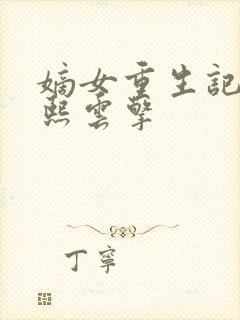 嫡女重生記
熙雲擎
丁寧